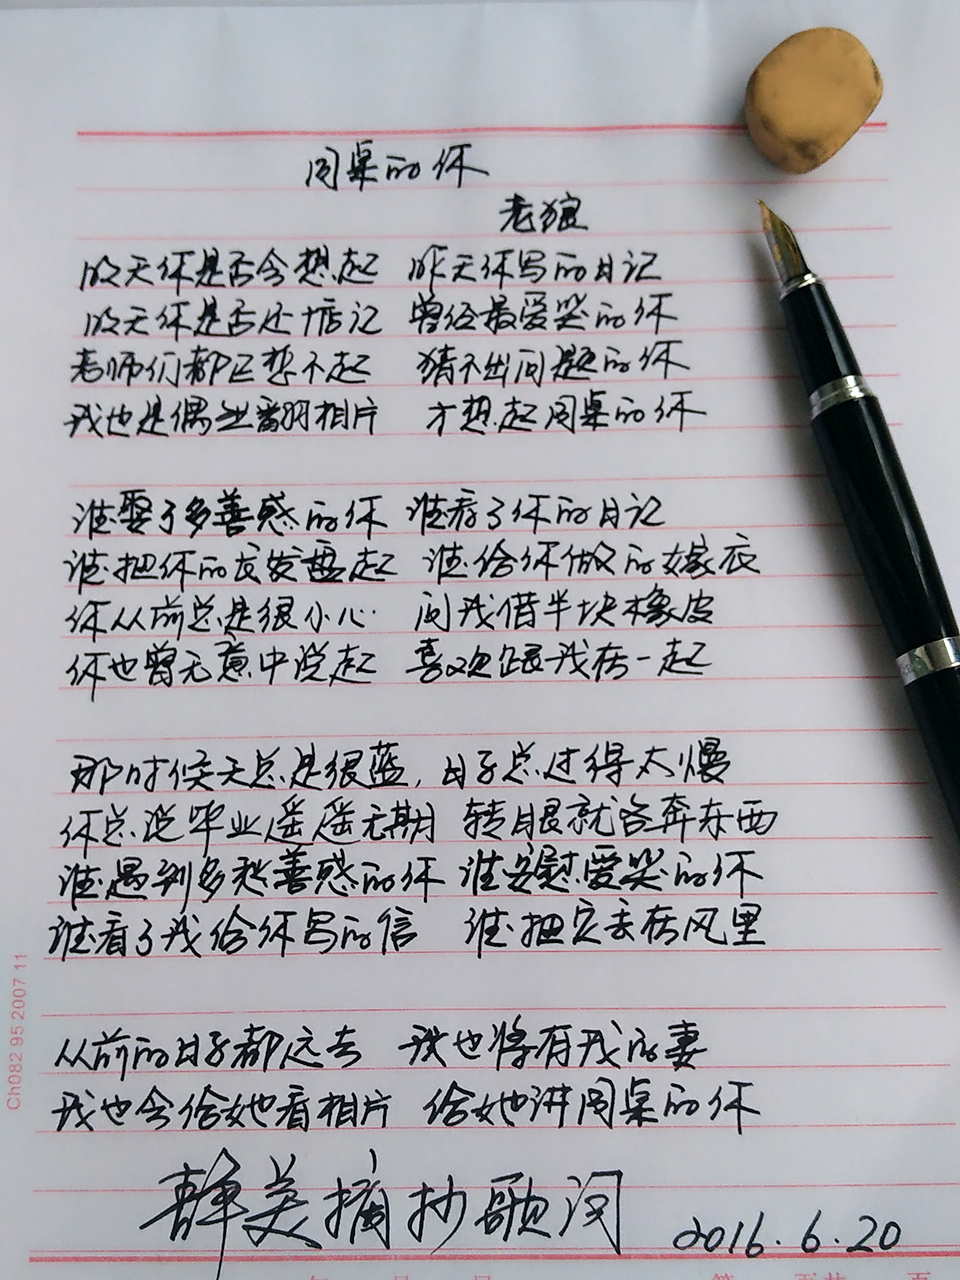 同桌的你
老狼
明天你是否会想起 昨天你写的日记
明天你是否还惦记 曾经最爱哭的你
老师们都已想不起 猜不出问题的你
我也是偶然翻相片 才想起同桌的你
谁娶了多善感的你 谁看了你的日记
谁把你的长发盘起 谁给你做的嫁衣
你从前总是很小心 问我借半块橡皮
你也曾无意中说起 喜欢跟我在一起
那时候天总是很蓝，日子总过得太慢
你总说毕业遥遥无期 转眼就各奔东西
谁遇到多愁善感的你 谁安慰爱哭的你
谁看了我给你写的信 谁把它丢在风里
从前的日子都远去 我也将有我的妻
我也会给她看相片 给她讲同桌的你
静美摘抄歌词 2016.6.20
Ch082 95 2007 11